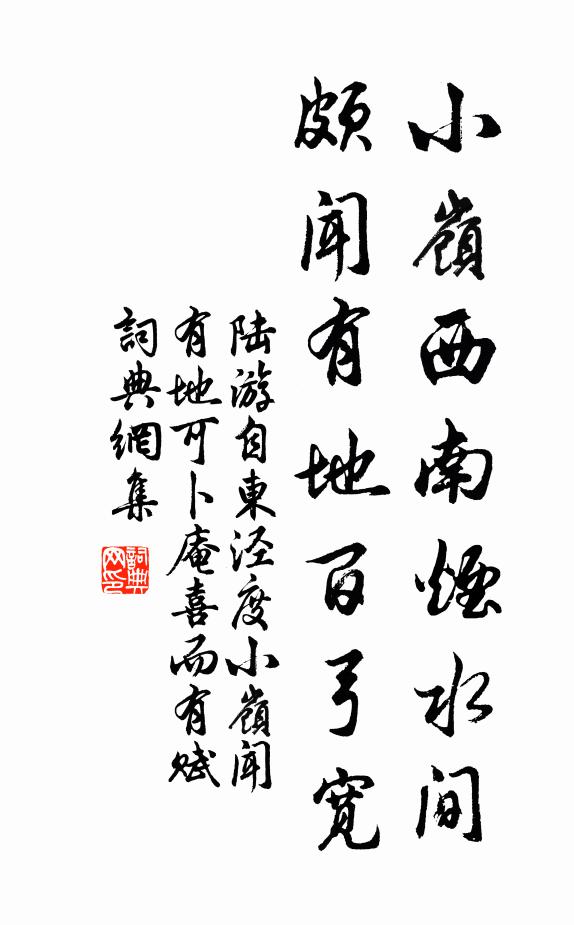 小嶺西南煙水间
頗闻有地百弓寬
陆游自東涇度小嶺闻
有地可卜庵喜而有赋
詞典網集
詞典
网印